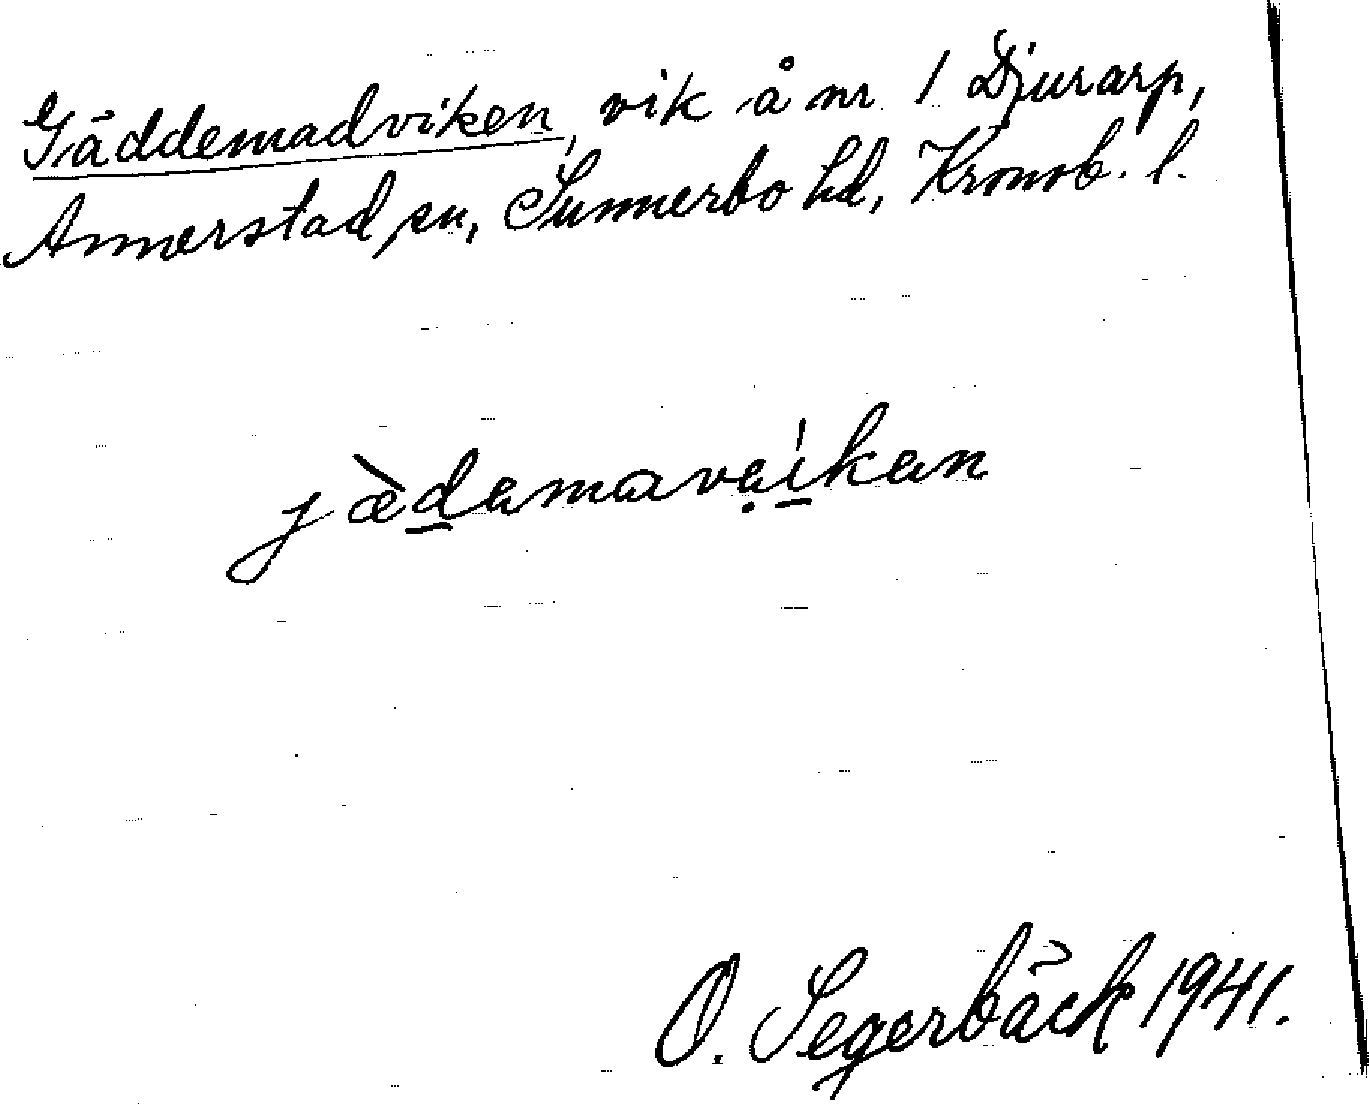 Gäddemadviken, vik å nr 1 Djurarp,
Annerstad sn, Sunnerbo hd, Kronob. l.
jæ̀damavạikan
O. Segerbäck 1941.